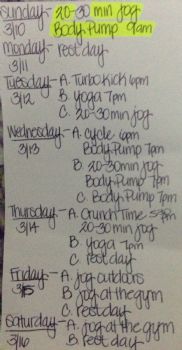 Sunday - 20-30 min jog
3/10 Body Pump 9am
Monday - rest day
3/11
Tuesday - A. Turbo kick 6pm
3/12 B. Yoga 7pm
C. 20-30 min jog
Wednesday - A. cycle 6pm
3/13 Body Pump 7pm
B. 20-30min jog
Body Pump 7pm
C. Body Pump 7pm
Thursday - A. Crunch Time
3/14 20-30 min jog
B. Yoga 7pm
C. rest day
Friday - A. jog outdoors
3/15 B. jog at the gym
C. rest day
Saturday - A. jog at the gym
3/16 B. rest day